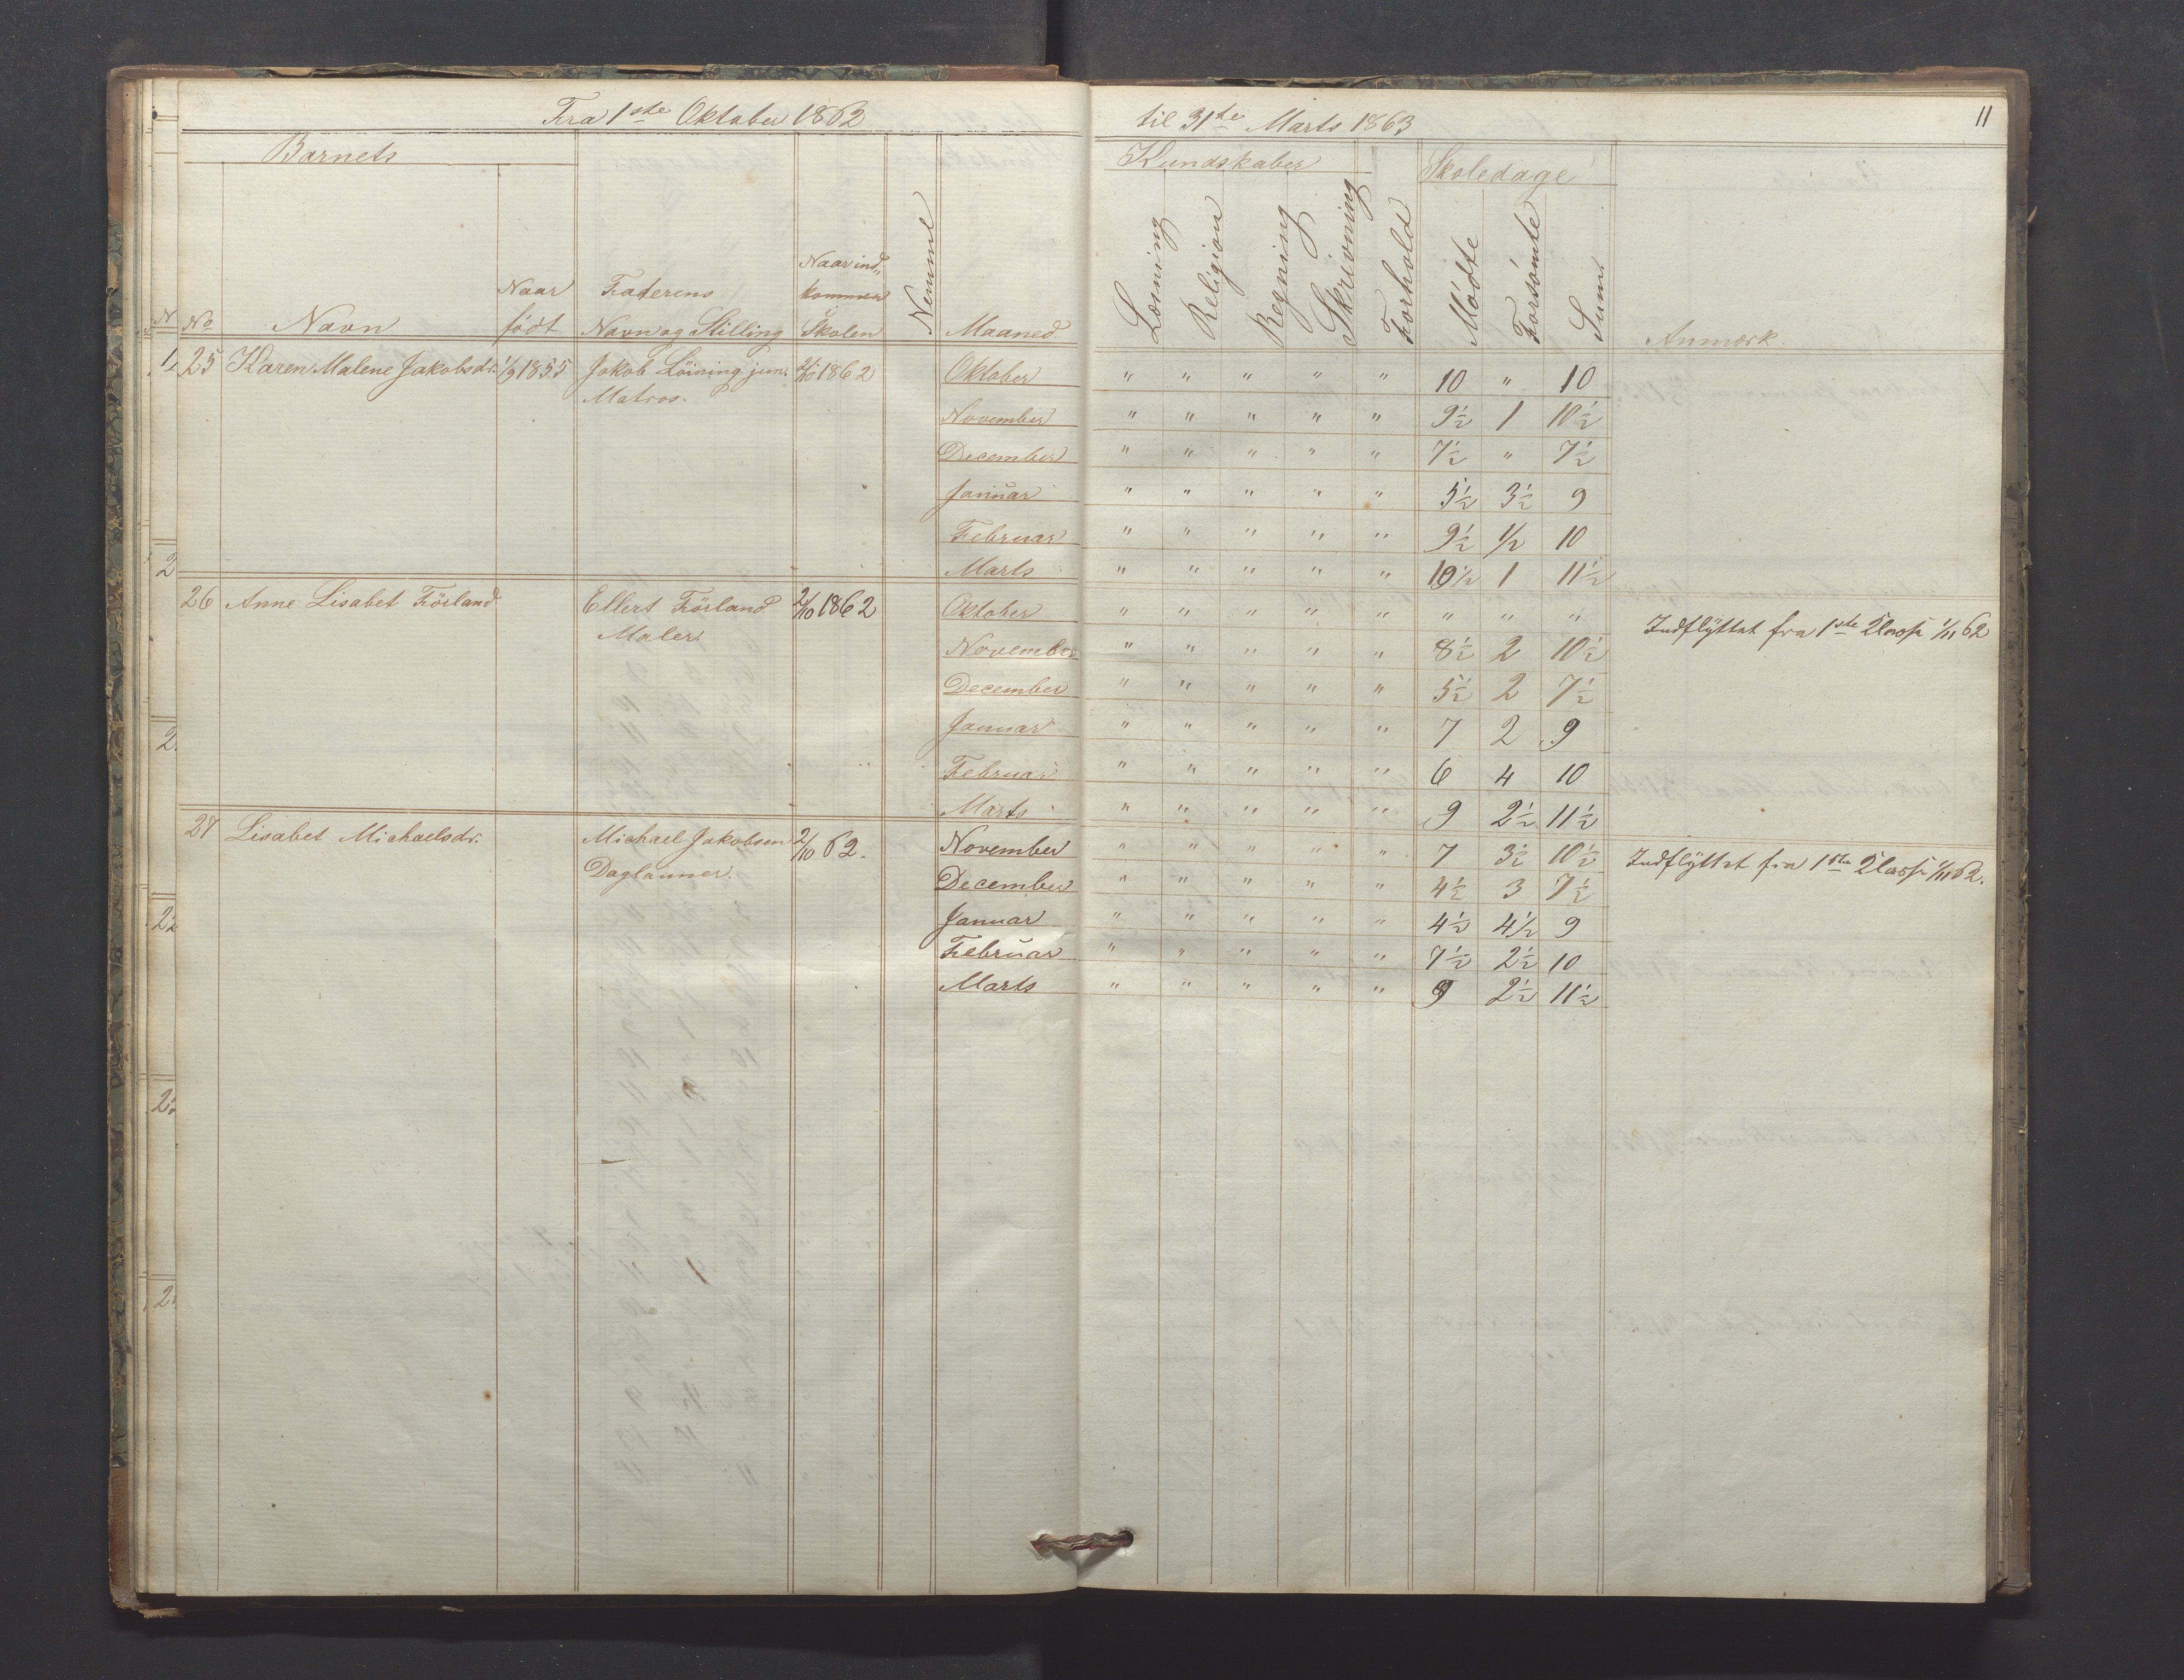 Fra 1ste Oktober 1862 til 31te Marts 1863 11
Barnets Kundskaber Skoledage
No Navn Naar født Faderens Navn og Stilling Naar ind„ kommen i Skolen Nemme Maaned Læsning Religion Regning Skrivning Forhold Mødte Forsømte Sum Anmærk.
25 Karen Malene Jakobsdr. 1855 Jakob Löining jun. 1862 Oktober " " " " " 10 " 10
Matros.
November " " " " " 9½ 1 10½
December " " " " " 7½ " 7½
Januar " " " " " 5½ 3½ 9
Februar " " " " " 9½ ½ 10
Marts " " " " " 10½ 1 11½
26 Anne Lisabet Förland Ellert Förland 2/10 1862 Oktober " " " " " " " " Indflyttet fra 1ste Classe 1/11 62
Maler.
November " " " " " 8½ 2 10½
December " " " " " 5½ 2 7½
Januar " " " " " 7 2 9
Februar " " " " " 6 4 10
Marts " " " " " 9 2½ 11½
27 Lisabet Michaelsdr. Michael Jakobsen 2/10 62. November " " " " " 7 3½ 10½ Indflyttet fra 1ste Classe 1/11 62.
Daglønner.
December " " " " " 4½ 3 7½
Januar " " " " " 4½ 4½ 9
Februar " " " " " 7½ 2½ 10
Marts " " " " " 9 2½ 11½